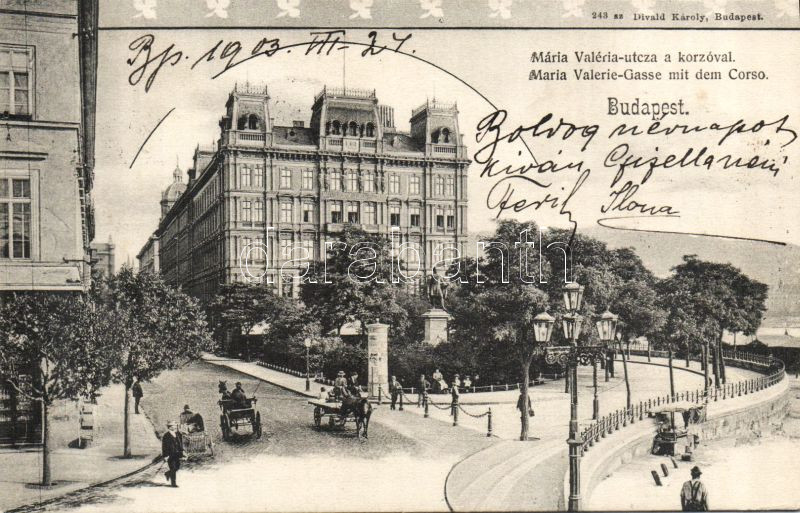 243 sz Divald Károly, Budapest.
Bp. 1903 III-27.
Mária Valéria-utcza a korzóval.
Maria Valerie-Gasse mit dem Corso.
Budapest.
Boldog névnapot
kiván
Ilona
darabanth